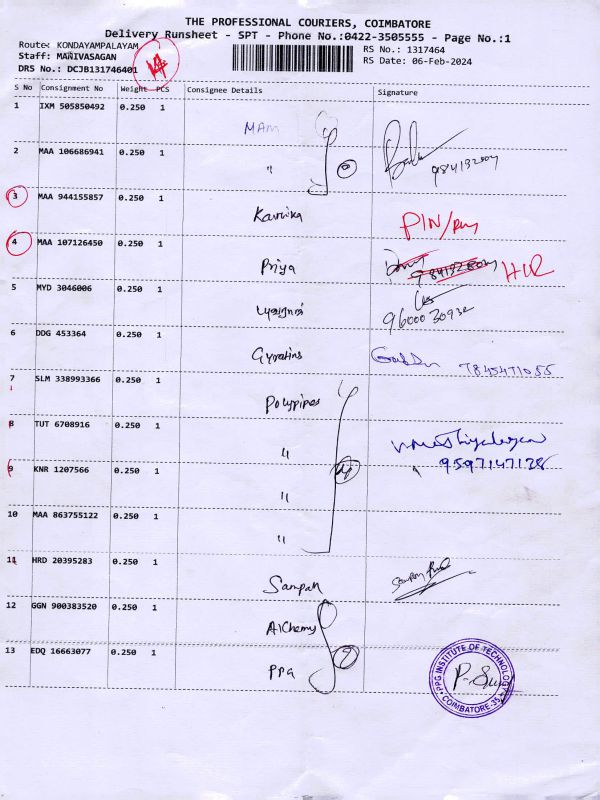 THE PROFESSIONAL COURIERS, COIMBATORE
Delivery Runsheet - SPT - Phone No.:0422-3505555 - Page No.:1
Route: KONDAYAMPALAYAM
Staff: MANIVASAGAN
DRS No.: DCJB131746401
RS No.: 1317464
RS Date: 06-Feb-2024
S No Consignment No Weight PCS Consignee Details Signature
1 IXM 505850492 0.250 1 MAM
2 MAA 106686941 0.250 1 " 9841132807
3 MAA 944155857 0.250 1 Karnika PIN/
4 MAA 107126450 0.250 1 Priya
5 MYD 3046006 0.250 1 9600030932
6 DDG 453364 0.250 1 7845471055
7 SLM 338993366 0.250 1 Polypipes
8 TUT 6708916 0.250 1 "
9 KNR 1207566 0.250 1 " 9597147128
10 MAA 863755122 0.250 1 "
11 HRD 20395283 0.250 1 Sampath
12 GGN 900383520 0.250 1 Alchemy
13 EDQ 16663077 0.250 1 PPG
PPG INSTITUTE OF TECHNOLOGY
COIMBATORE-35